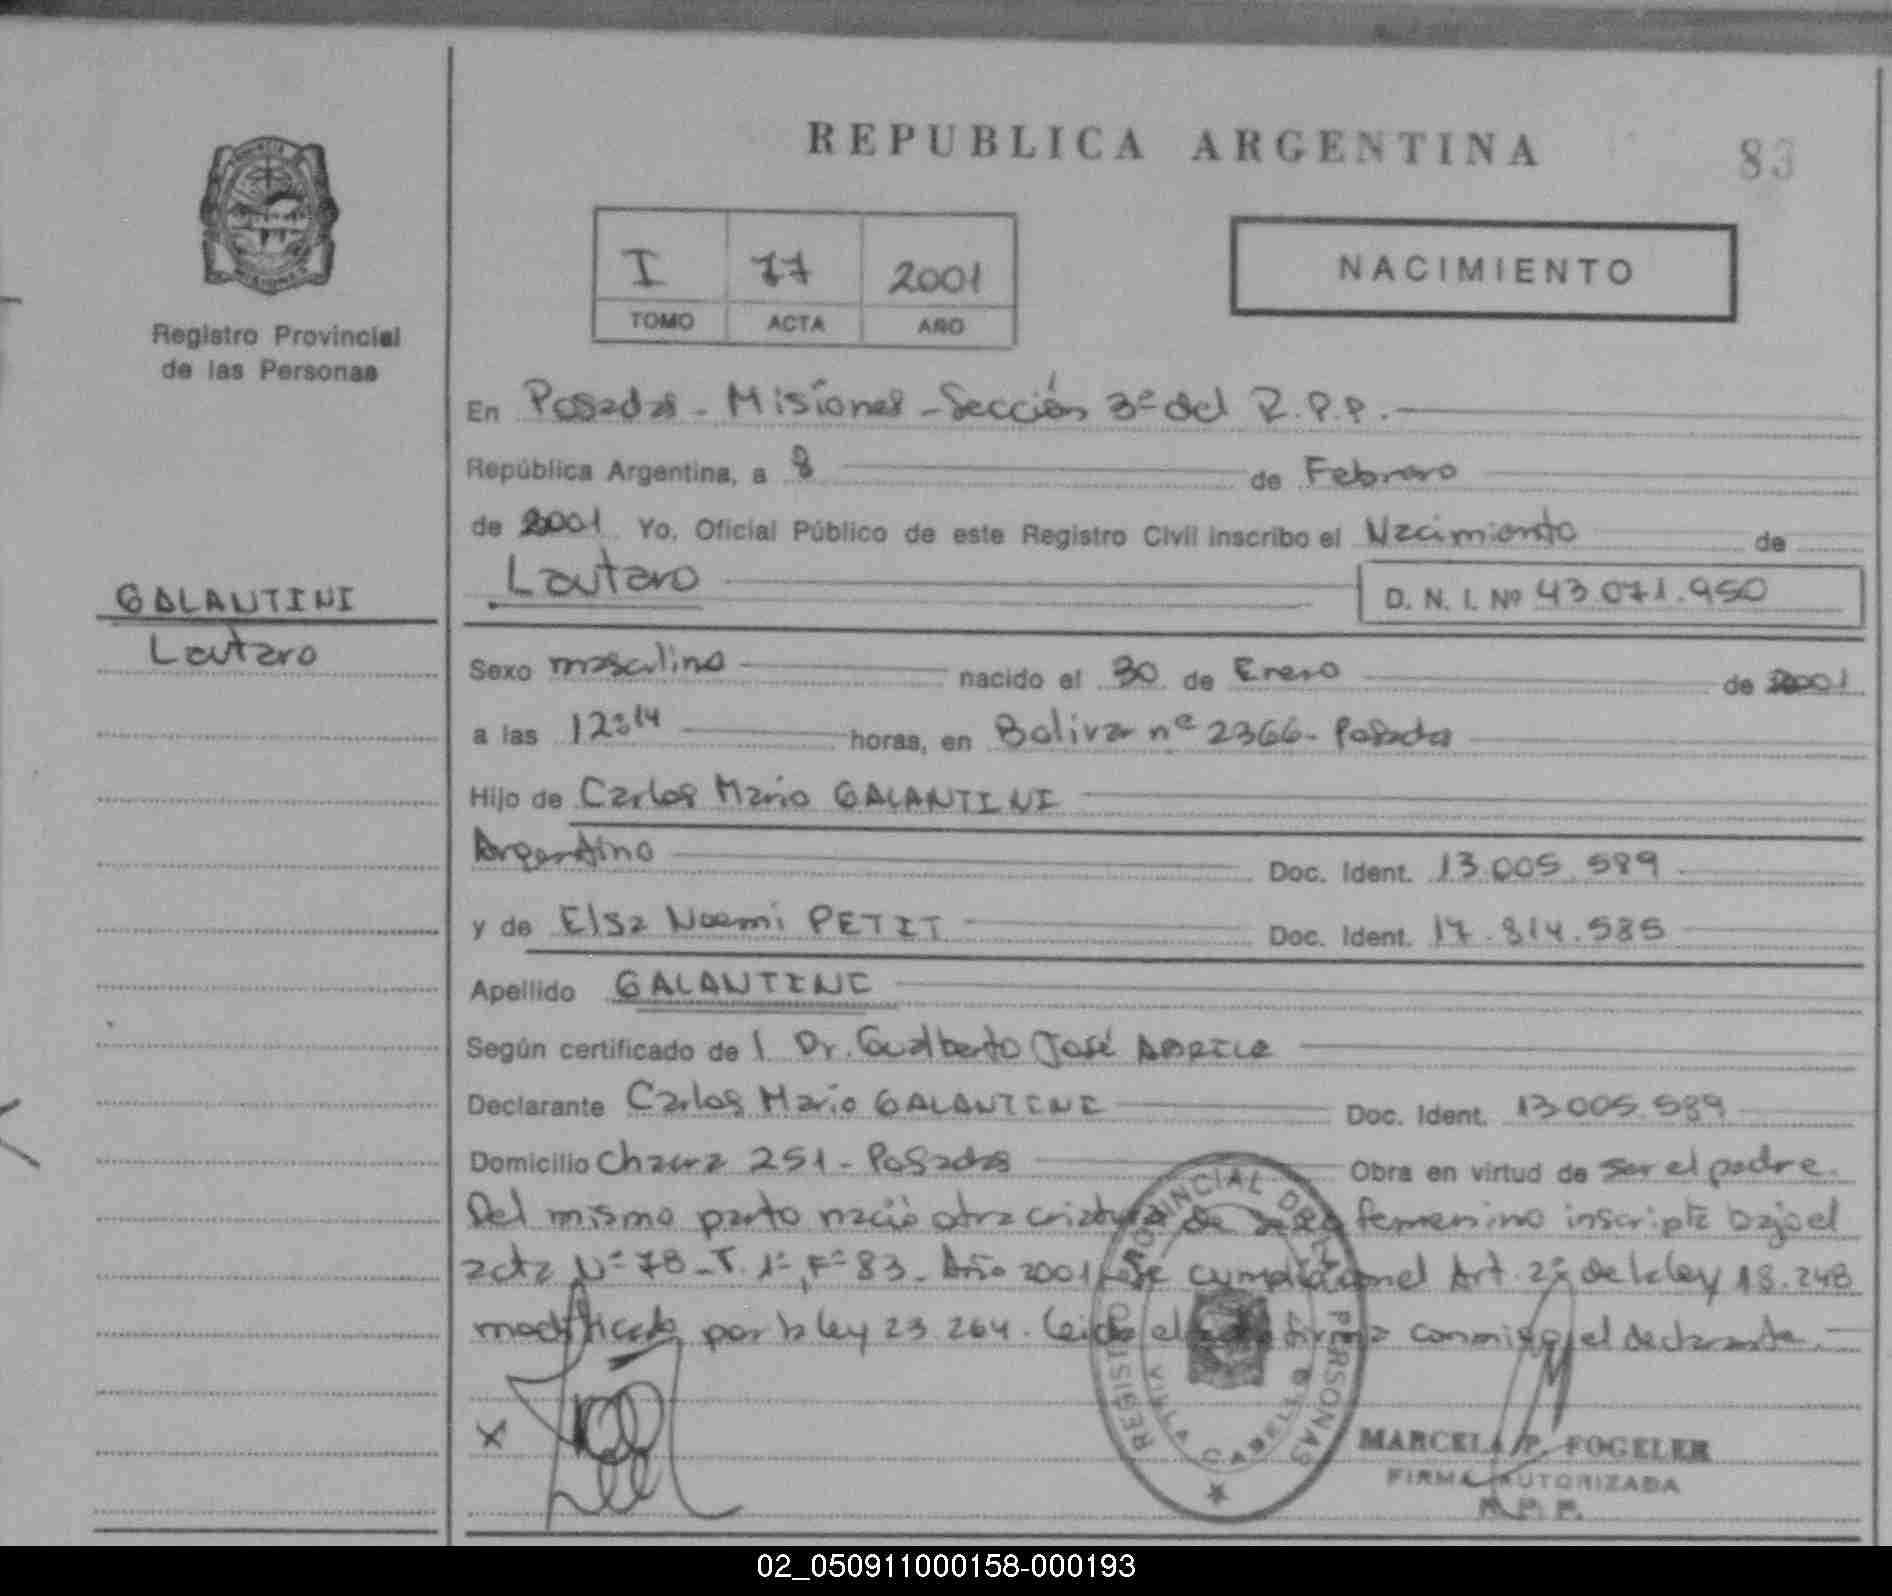 REPUBLICA ARGENTINA
83
I 77 2001
TOMO ACTA AÑO
NACIMIENTO
Registro Provincial
de las Personas
GALANTINI
Lautaro
En Posadas - Misiones - Sección 3ª del R.P.P.
República Argentina, a 8 de Febrero
de 2001 Yo, Oficial Público de este Registro Civil inscribo el Nacimiento de
Lautaro D. N. I. Nº 43.071.950
Sexo masculino nacido el 30 de Enero de 2001
a las 12:14 horas, en Bolivar nº 2366 - Posadas
Hijo de Carlos Mario GALANTINI
Argentino Doc. Ident. 13.005.589
y de Elsa Noemi PETIT Doc. Ident. 17.814.585
Apellido GALANTINI
Según certificado de l Dr. Gualberto José
Declarante Carlos Mario GALANTINI Doc. Ident. 13.005.589
Domicilio 251 - Posadas Obra en virtud de ser el padre.
Del mismo parto nació otra criatura de sexo femenino inscripta bajo el
acta Nº 78 - T. 1º, Fº 83 - Año 2001 con el Art. 2º de la ley 18.248
modificada por la ley 23.264. Leida el acta firma conmigo el declarante.
REGISTRO PROVINCIAL DE LAS PERSONAS
VILLA CABELLO
x
MARCELA P. FOGELER
FIRMA AUTORIZADA
R. P. P.
02_050911000158-000193